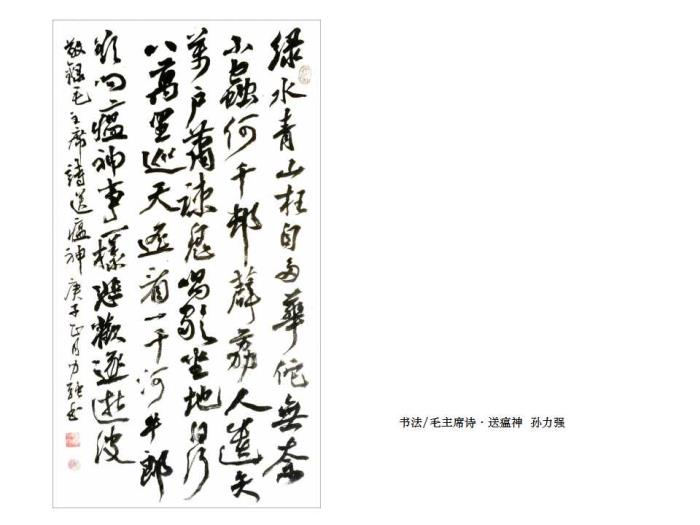 绿水青山枉自多華佗無奈
小蟲何千邨薜荔人遺矢
萬户蕭疎鬼唱歌坐地日行
八萬里巡天遥看一千河牛郎
欲问瘟神事一樣悲歡逐逝波
敬録毛主席詩送瘟神庚子正月力強書
书法/毛主席诗·送瘟神 孙力强